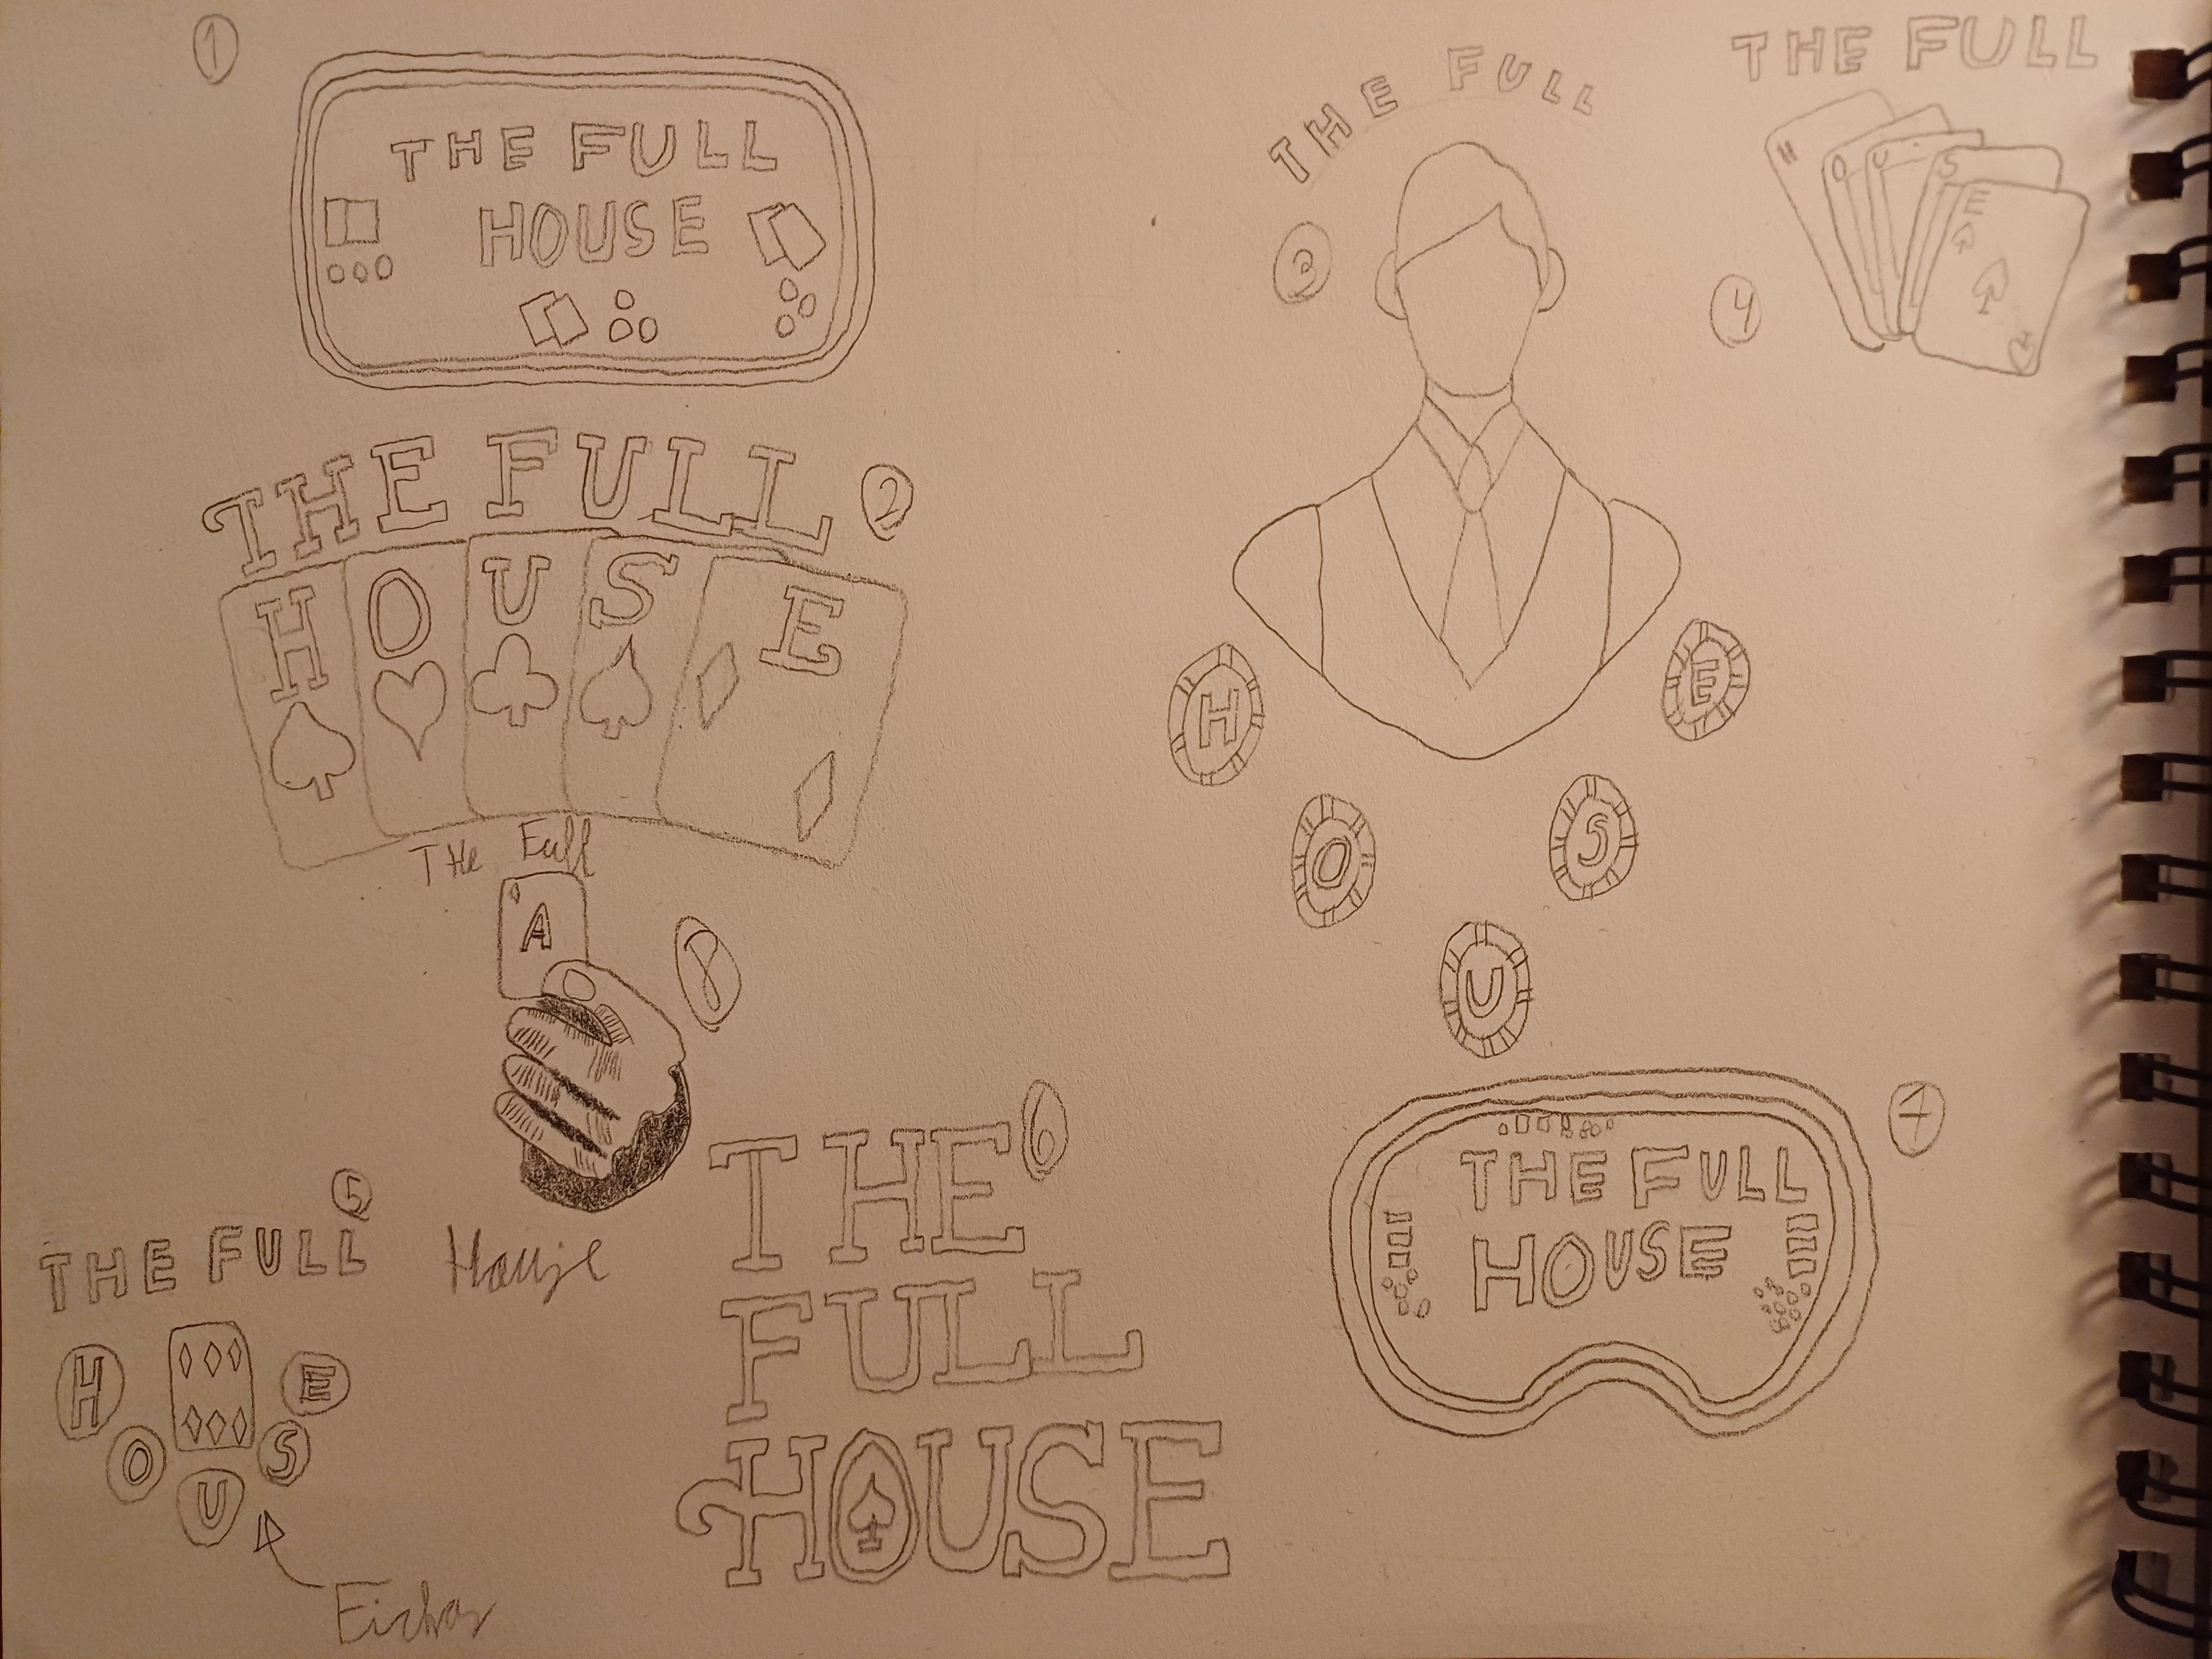 1
THE FULL
HOUSE
THE FULL
2
HOUSE
THE FULL
3
HOUSE
THE FULL
4
HOUSE
THE Full
A
8
House
5
THE FULL
HOUSE
Fichas
6
THE
FULL
HOUSE
7
THE FULL
HOUSE